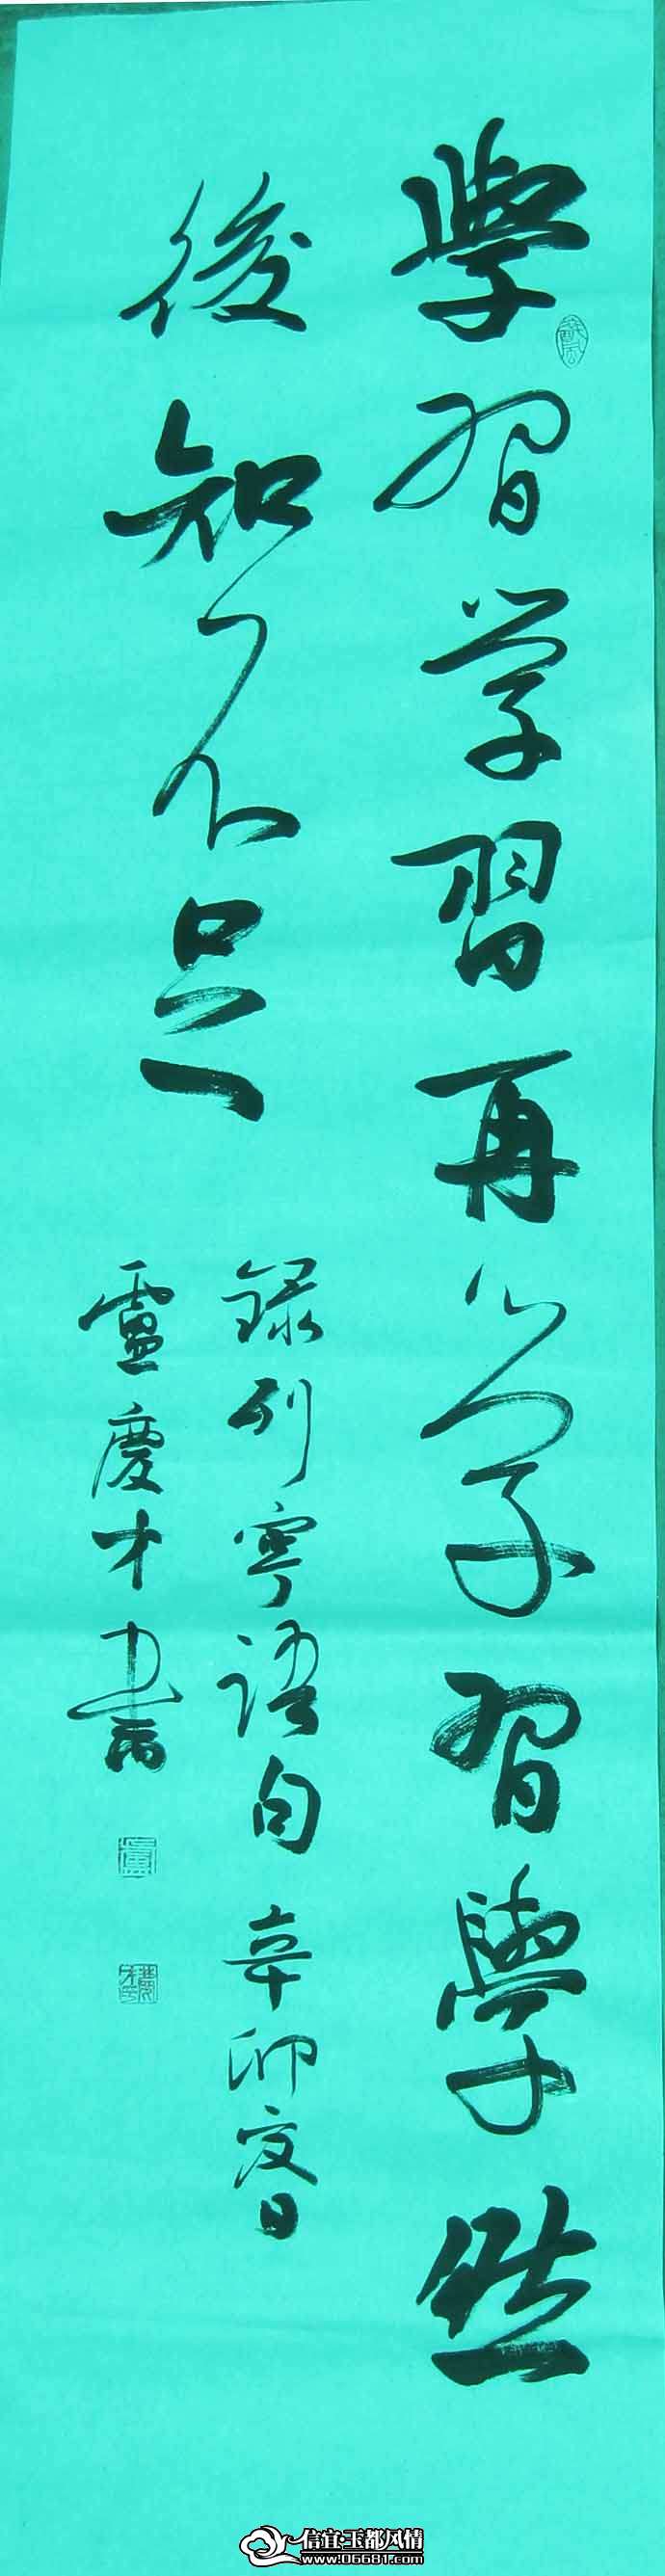 學習学習再学習學然
後知不足
録列寧语句 辛卯夏日
盧慶才書
信宜·玉都风情
www.06681.com